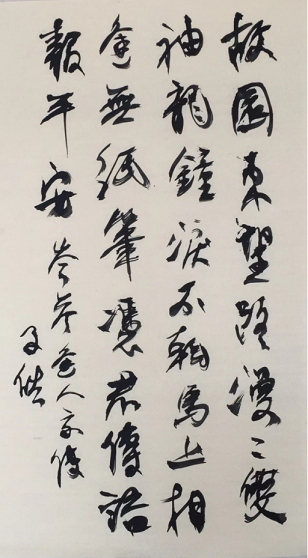 故園東望路漫〻雙
袖龍鍾淚不乾馬上相
逢無紙筆憑君傳語
報平安 岑參逢入京使